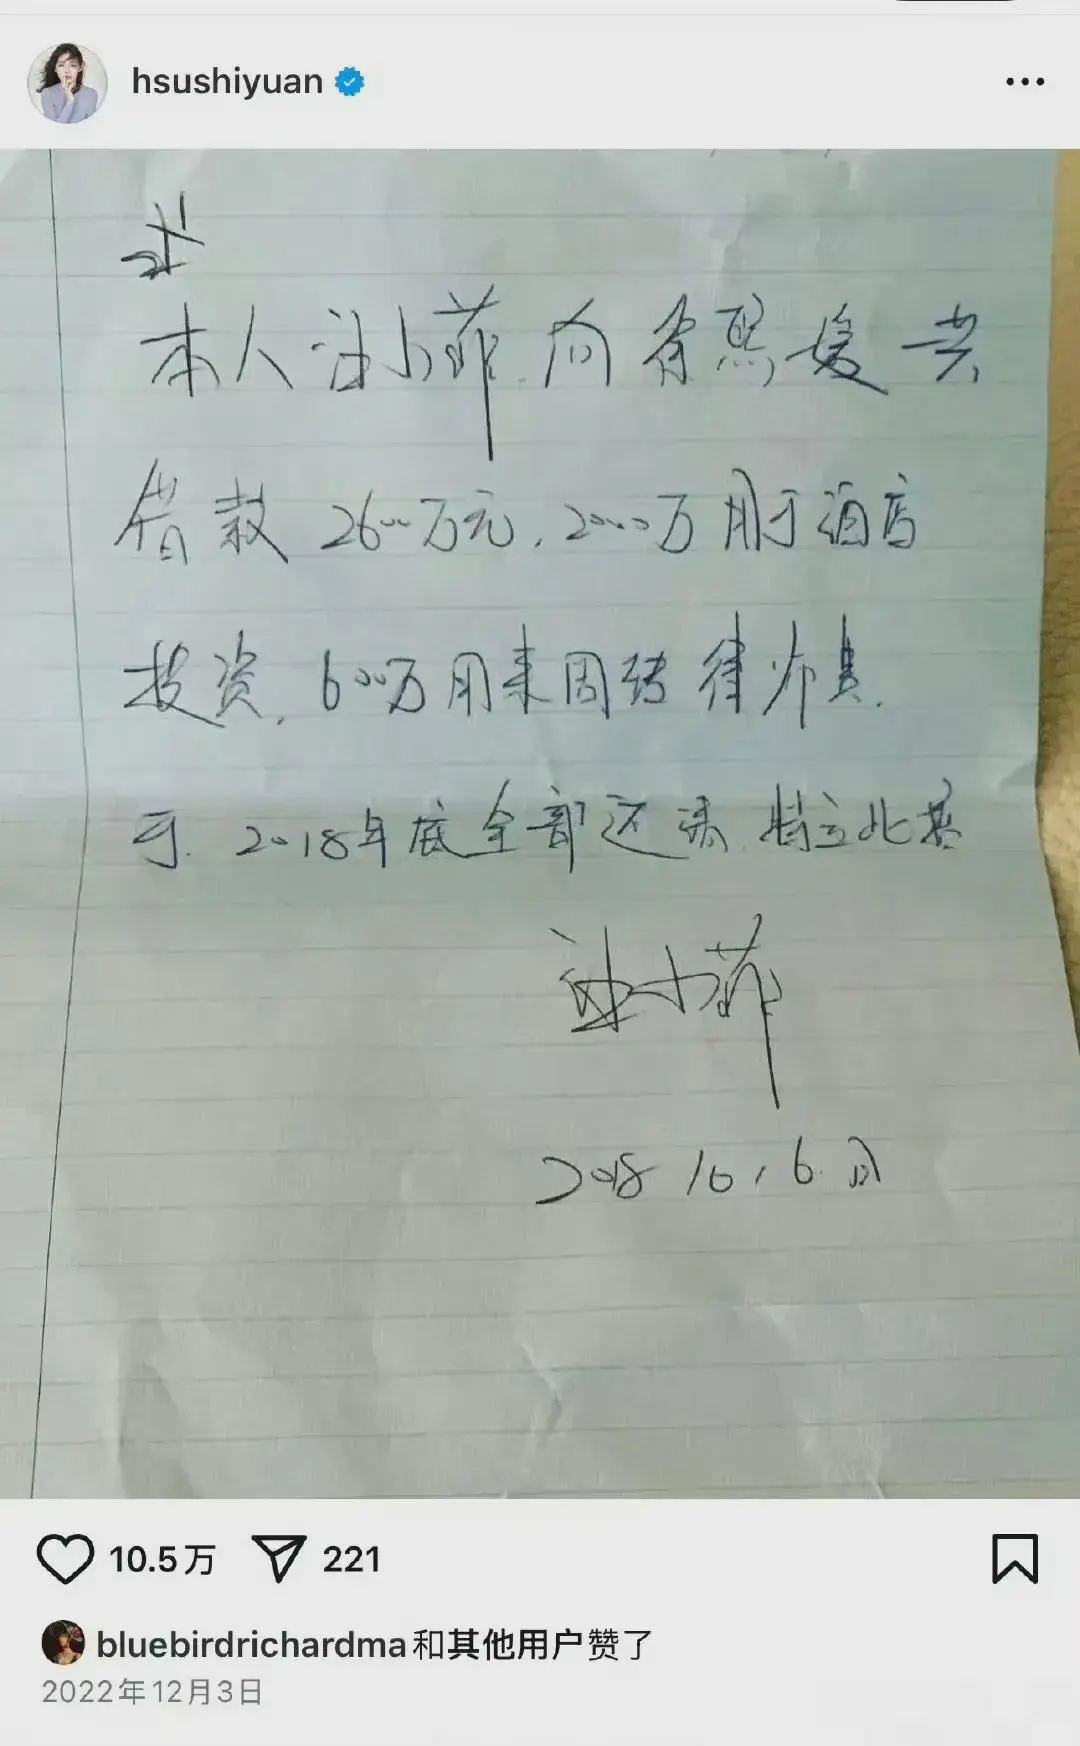 hsushiyuan
本人汪小菲向徐熙媛共
借款2600万元，2000万用于酒店
投资，600万用来周转律师费.
于.2018年底全部还清.特立此据
汪小菲
2018 10，6.日
10.5万 221
bluebirdrichardma和其他用户赞了
2022年12月3日